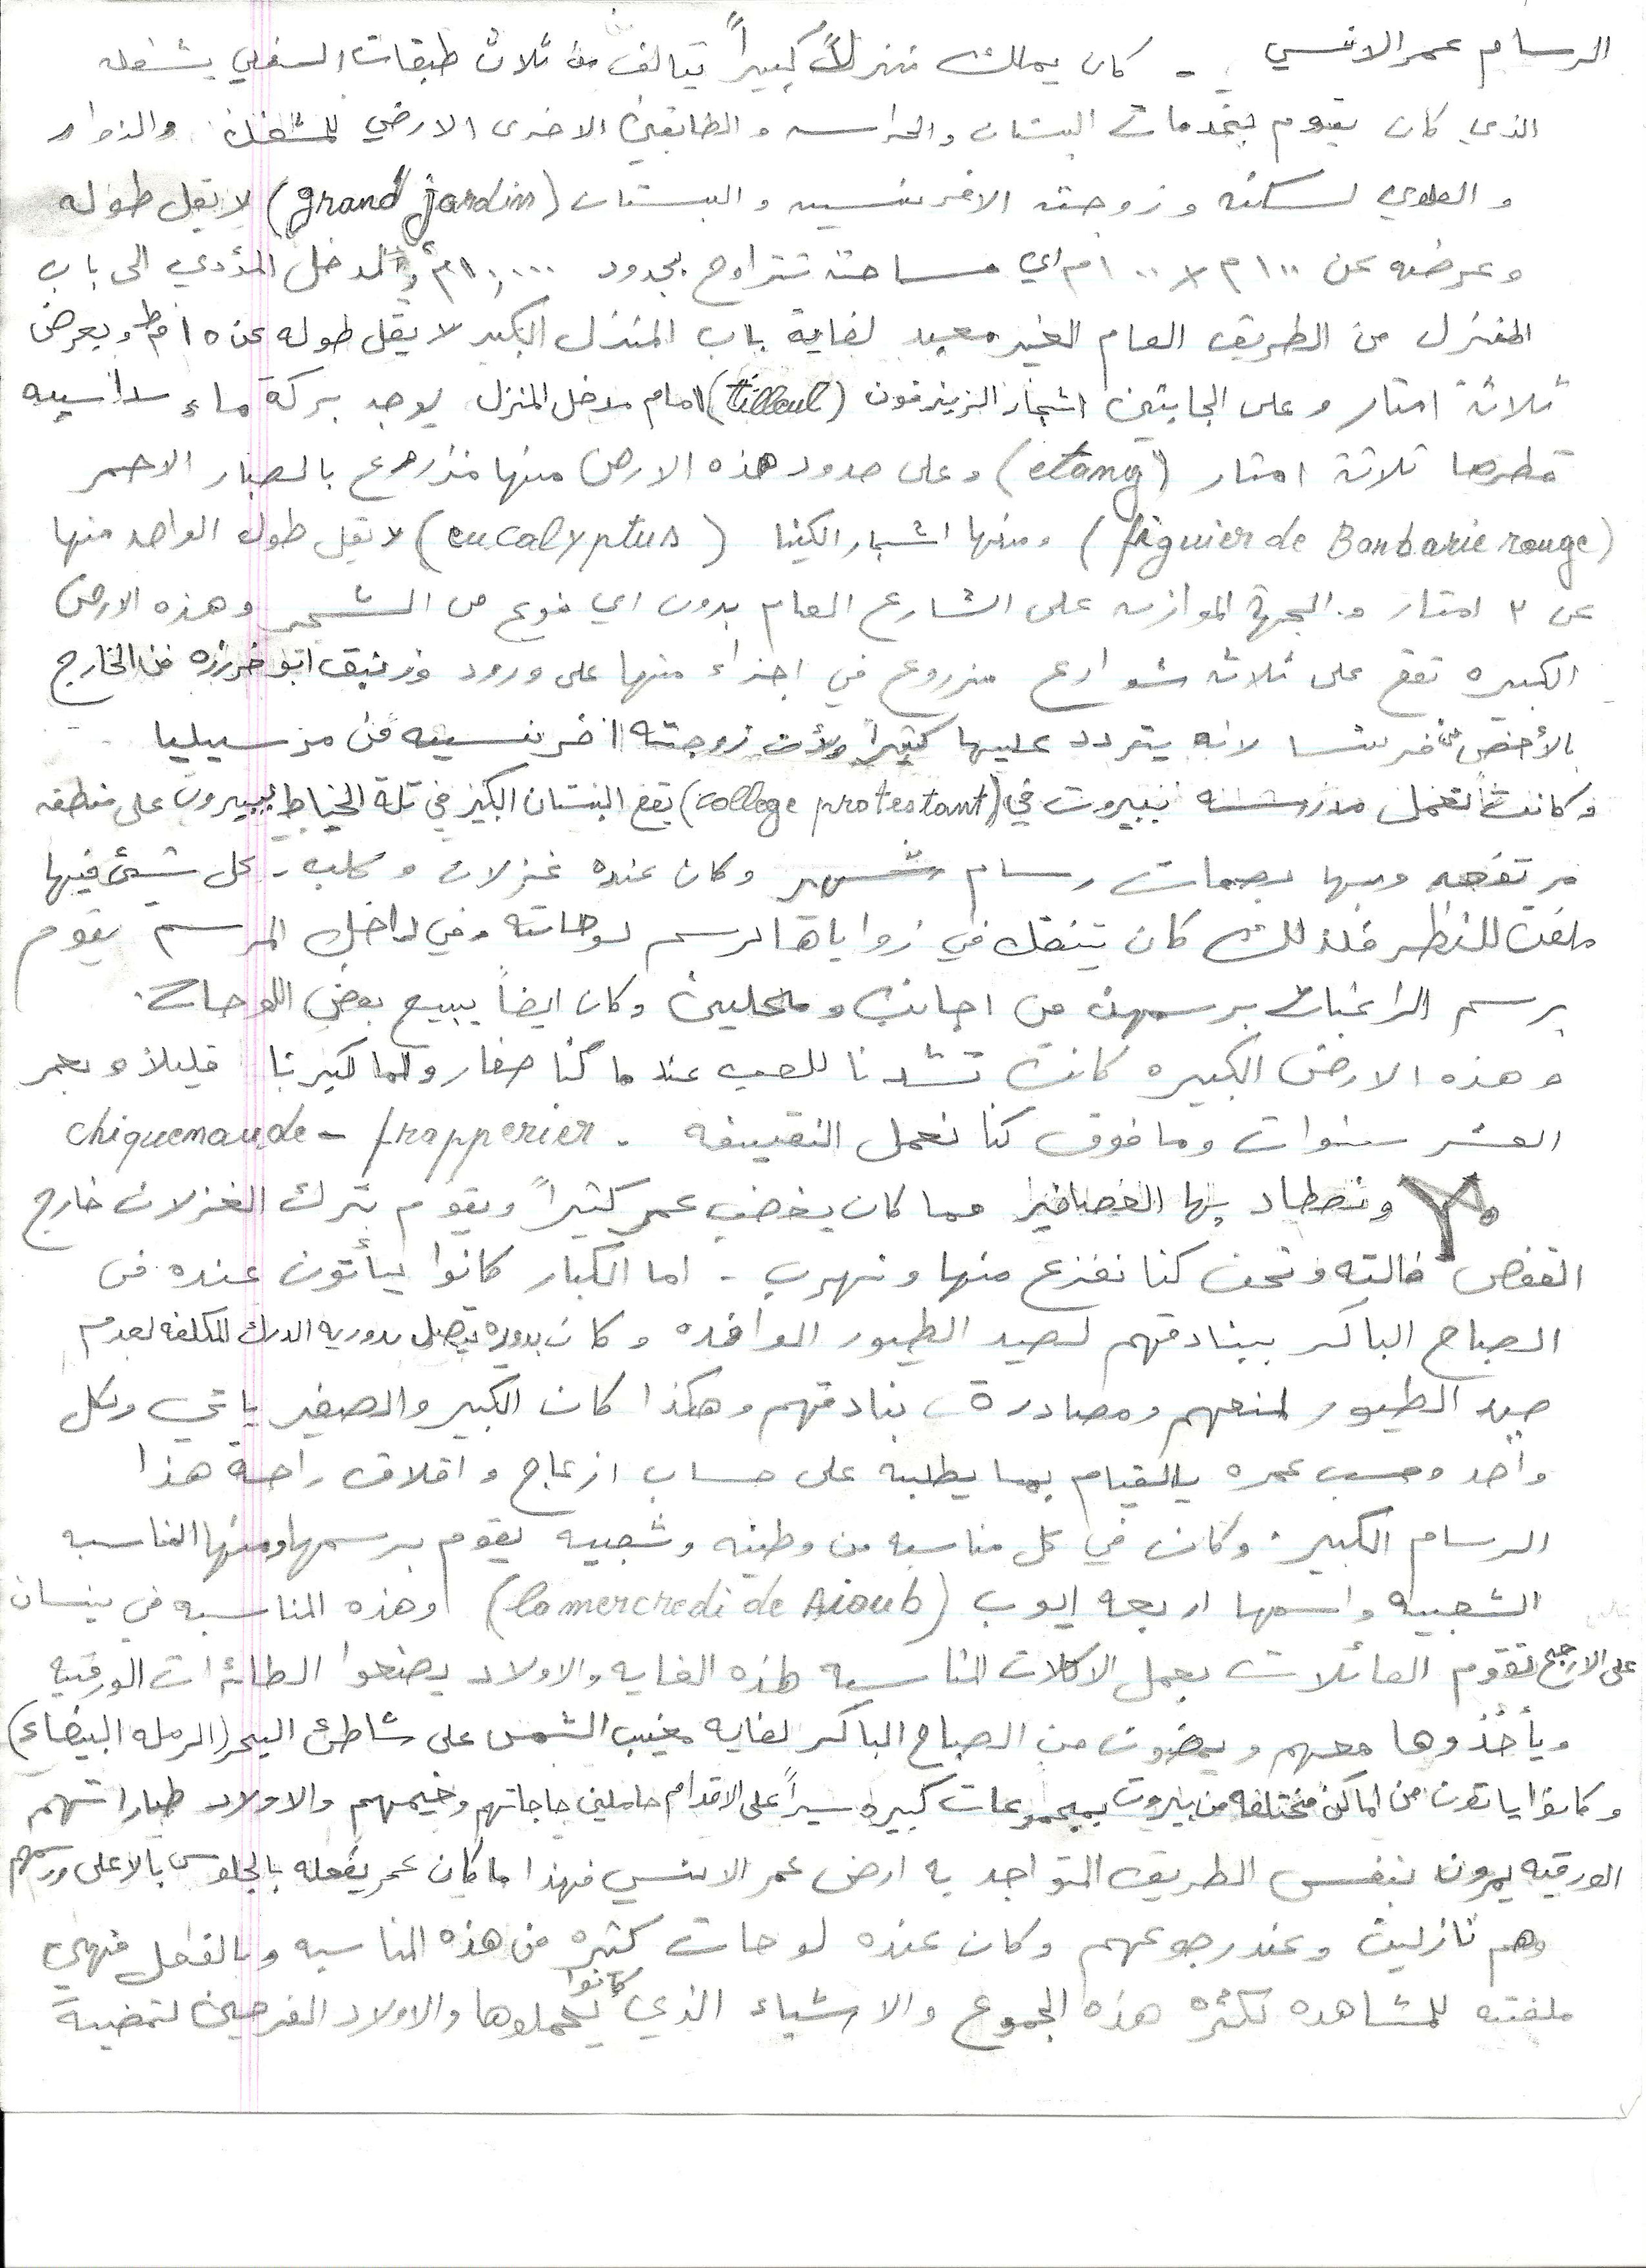 الرسام عمر الانسي - كان يملك منزلاً كبيراً يتالف من ثلاث طبقات السفلي يشغله
الذي كان يقوم بخدمات البستان والحراسه والطابقين الاخرى الارضي للمشغل والزوار
و العلوي لسكنه و زوجته الافرنسيه والبستان (grand jardin) لا يقل طوله
وعرضه عن ١٠٠م x ١٠٠م اي مساحته تتراوح بحدود ١٠,٠٠٠م والمدخل المؤدي الى باب
المنزل من الطريق العام الغير معبد لغاية باب المنزل الكبير لا يقل طوله عن ١٥ م وبعرض
ثلاثة امتار وعلى الجانبين اشجار الزيزفون (tilleul) امام مدخل المنزل يوجد بركة ماء سداسيه
قطرها ثلاثة امتار (etang) وعلى حدود هذه الارض منها مزروع بالصبار الاحمر
(figuier de Barbarie rouge) ومنها اشجار الكينا (eucalyptus) لا يقل طول الواحد منها
عن ٣ امتار و الجهة الموازيه على الشارع العام بدون اي نوع من الشجر وهذه الارض
الكبيره تقع على ثلاثه شوارع مزروع في اجزاء منها على ورود وزنبق من الخارج
بالأخص من فرنسا لانه يتردد عليها كثيراً ولأن زوجته افرنسيه من مرسيليا
وكانت تعمل مدرسه ببيروت في (college protestant) يقع البستان الكبير في تلة الخياط ببيروت على منطقه
مرتفعه وبها بصمات رسام شهير وكان عنده غزلان و كلب - كل شيئ فيها
ملفت للنظر فلذلك كان يتنقل في زواياها لرسم لوحاته وفي داخل المرسم يقوم
برسم الراغبات برسمهن من اجانب و محليين وكان ايضاً يبيع بعض اللوحات.
و هذه الارض الكبيره كانت تشدنا للعب عندما كنا صغار ولما كبرنا قليلاً و بعمر
العشر سنوات وما فوق كنا نعمل النقيفه - chiquenaude - frapperier
ونصطاد بها العصافير مما كان يغضب عمر كثيراً ويقوم بترك الغزلان خارج
القفص فالته ونحن كنا نفزع منها ونهرب - اما الكبار كانوا يأتون عنده في
الصباح الباكر ببنادقهم لصيد الطيور الوافده وكان بدوره يتصل بدورية الدرك المكلفه لعدم
صيد الطيور لمنعهم ومصادرة بنادقهم وهكذا كان الكبير والصغير ياتي وكل
واحد وحسب عمره بالقيام بما يطلبه على حساب ازعاج و اقلاق راحة هذا
الرسام الكبير. وكان في كل مناسبه من وطنيه وشعبيه يقوم برسمها ومنها المناسبه
الشعبيه واسمها اربعه ايوب (la mercredi de Aioub) وهذه المناسبه في نيسان
على الارجح تقوم العائلات بعمل الاكلات المناسبه لهذه الغايه والاولاد يصنعوا الطائرات الورقيه
ويأخذوها معهم ويمضون من الصباح الباكر لغايه مغيب الشمس على شاطئ البحر (الرمله البيضاء)
وكانوا ياتون من اماكن مختلفه من بيروت بمجموعات كبيره سيراً على الاقدام حاملين حاجاتهم وخيمهم والاولاد طياراتهم
الورقيه يمرون بنفس الطريق المتواجد به ارض عمر الانسي فهذا ما كان عمر يفعله بالجلوس بالاعلى ورسمهم
وهم نازلين وعند رجوعهم وكان عنده لوحات كثيره من هذه المناسبه وبالفعل فهي
ملفته للمشاهده لكثرة هذه الجموع والاشياء الذي كانوا يحملوها والاولاد الفرحين لتمضية